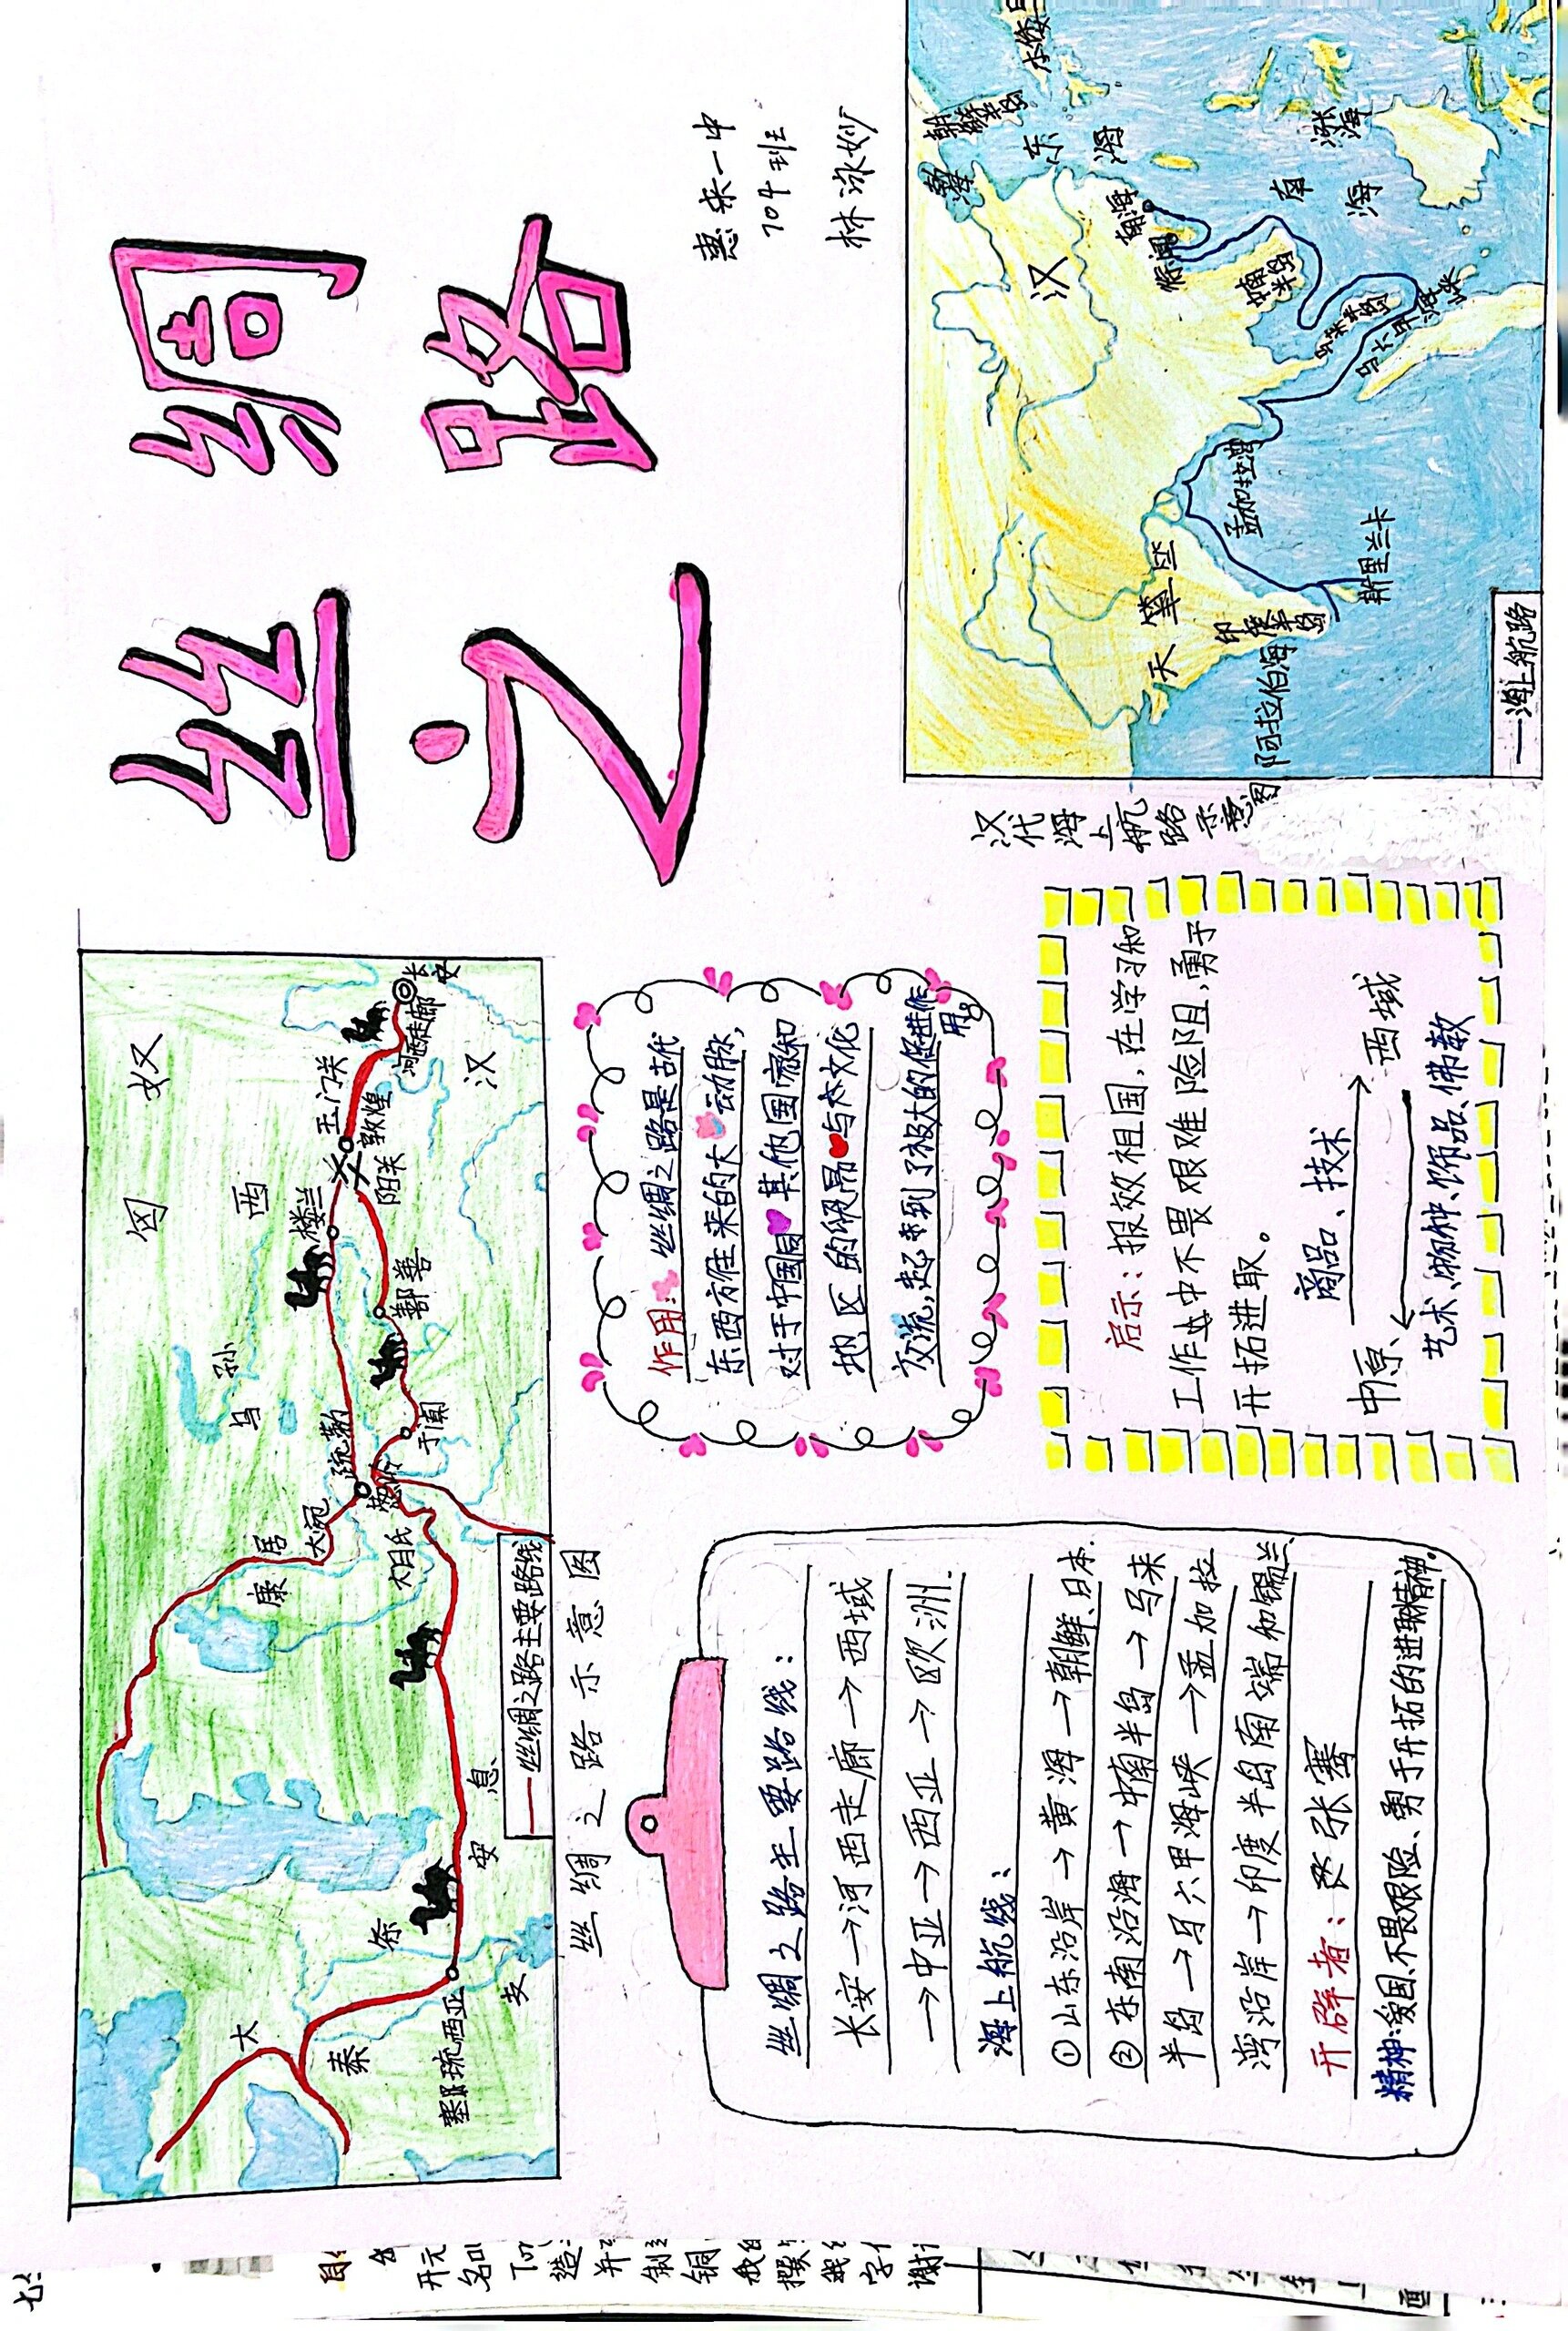 丝绸
之路
惠来一中
704班
林泳妙
匈 奴
西
乌 孙
康 居
大宛
疏勒
楼兰
玉门关
敦煌
阳关
鄯善
于阗
葱岭
大月氏
河西走廊
长安
汉
安 息
条
大 秦
塞琉西亚
丝绸之路主要路线
丝绸之路示意图
作用:丝绸之路是古代
东西方往来的大动脉,
对于中国同其他国家和
地区的贸易与文化
交流,起到了极大的促进作
用。
丝绸之路主要路线:
长安→河西走廊→西域
→中亚→西亚→欧洲.
海上航线:
①山东沿岸→黄海→朝鲜、日本.
②东南沿海→中南半岛→马来
半岛→马六甲海峡→孟加拉
湾沿岸→印度半岛南端和锡兰
开辟者:张骞
精神:爱国、不畏艰险、勇于开拓的进取精神.
启示:报效祖国,在学习和
工作中不畏艰难险阻,勇于
开拓进取。
商品、技术
中原 西域
艺术、物种、饰品、佛教
汉代海上航路示意图
朝鲜半岛
东海
汉
南海
涨海
中南半岛
马来半岛
马六甲海峡
孟加拉湾
天竺
印度半岛
斯里兰卡
阿拉伯海
海上航路